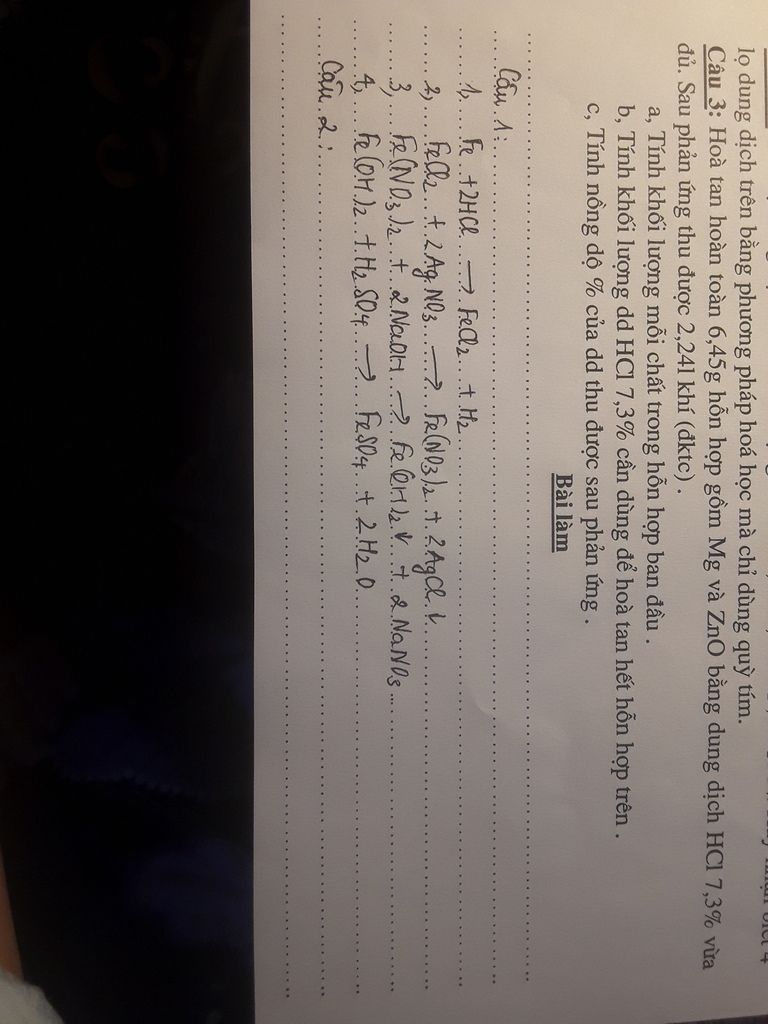 lọ dung dịch trên bằng phương pháp hoá học mà chỉ dùng quỳ tím.
Câu 3: Hoà tan hoàn toàn 6,45g hỗn hợp gồm Mg và ZnO bằng dung dịch HCl 7,3% vừa
đủ. Sau phản ứng thu được 2,24l khí (đktc) .
a, Tính khối lượng mỗi chất trong hỗn hợp ban đầu .
b, Tính khối lượng dd HCl 7,3% cần dùng để hoà tan hết hỗn hợp trên .
c, Tính nồng độ % của dd thu được sau phản ứng .
Bài làm
Câu 1:
1, Fe + 2HCl → FeCl2 + H2
2, FeCl2 + 2AgNO3 → Fe(NO3)2 + 2AgCl↓
3, Fe(NO3)2 + 2NaOH → Fe(OH)2↓ + 2NaNO3
4, Fe(OH)2 + H2SO4 → FeSO4 + 2H2O
Câu 2: